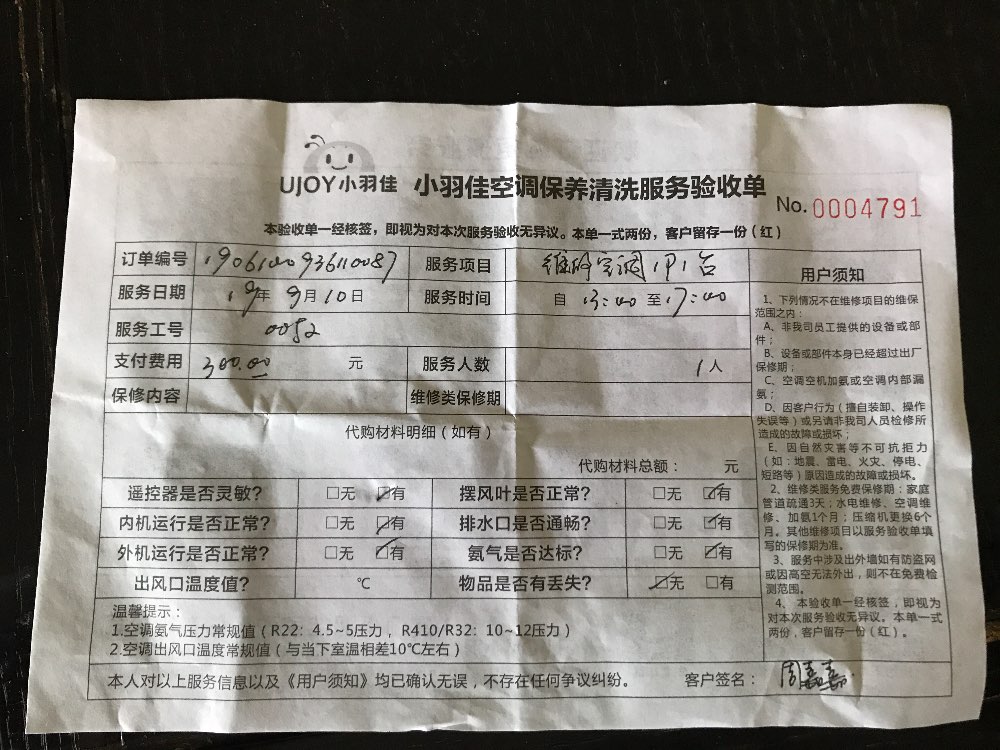 UJOY小羽佳 小羽佳空调保养清洗服务验收单
No.0004791
本验收单一经核签，即视为对本次服务验收无异议。本单一式两份，客户留存一份（红）
订单编号 服务项目 空调 台
服务日期 19年 9月 10日 服务时间 自 13:00 至 17:00
服务工号 0052
支付费用 300.00 元 服务人数 1人
保修内容 维修类保修期
代购材料明细（如有）
代购材料总额： 元
遥控器是否灵敏? □无 ☑有 摆风叶是否正常? □无 ☑有
内机运行是否正常? □无 ☑有 排水口是否通畅? □无 ☑有
外机运行是否正常? □无 ☑有 氨气是否达标? □无 ☑有
出风口温度值? ℃ 物品是否有丢失? ☑无 □有
温馨提示：
1.空调氨气压力常规值（R22：4.5~5压力，R410/R32：10~12压力）
2.空调出风口温度常规值（与当下室温相差10℃左右）
本人对以上服务信息以及《用户须知》均已确认无误，不存在任何争议纠纷。 客户签名：
用户须知
1、下列情况不在维修项目的维保
范围之内：
A、非我司员工提供的设备或部
件；
B、设备或部件本身已经超过出厂
保修期；
C、空调空机加氨或空调内部漏
氨；
D、因客户行为（擅自装卸、操作
失误等）或另请非我司人员检修所
造成的故障或损坏；
E、因自然灾害等不可抗拒力
（如：地震、雷电、火灾、停电、
短路等）原因造成的故障或损坏。
2、维修类服务免费保修期：家庭
管道疏通3天；水电维修、空调维
修、加氨1个月；压缩机更换6个
月。其他维修项目以服务验收单填
写的保修期为准。
3、服务中涉及出外墙如有防盗网
或因高空无法外出，则不在免费检
测范围。
4、本验收单一经核签，即视为
对本次服务验收无异议。本单一式
两份，客户留存一份（红）。